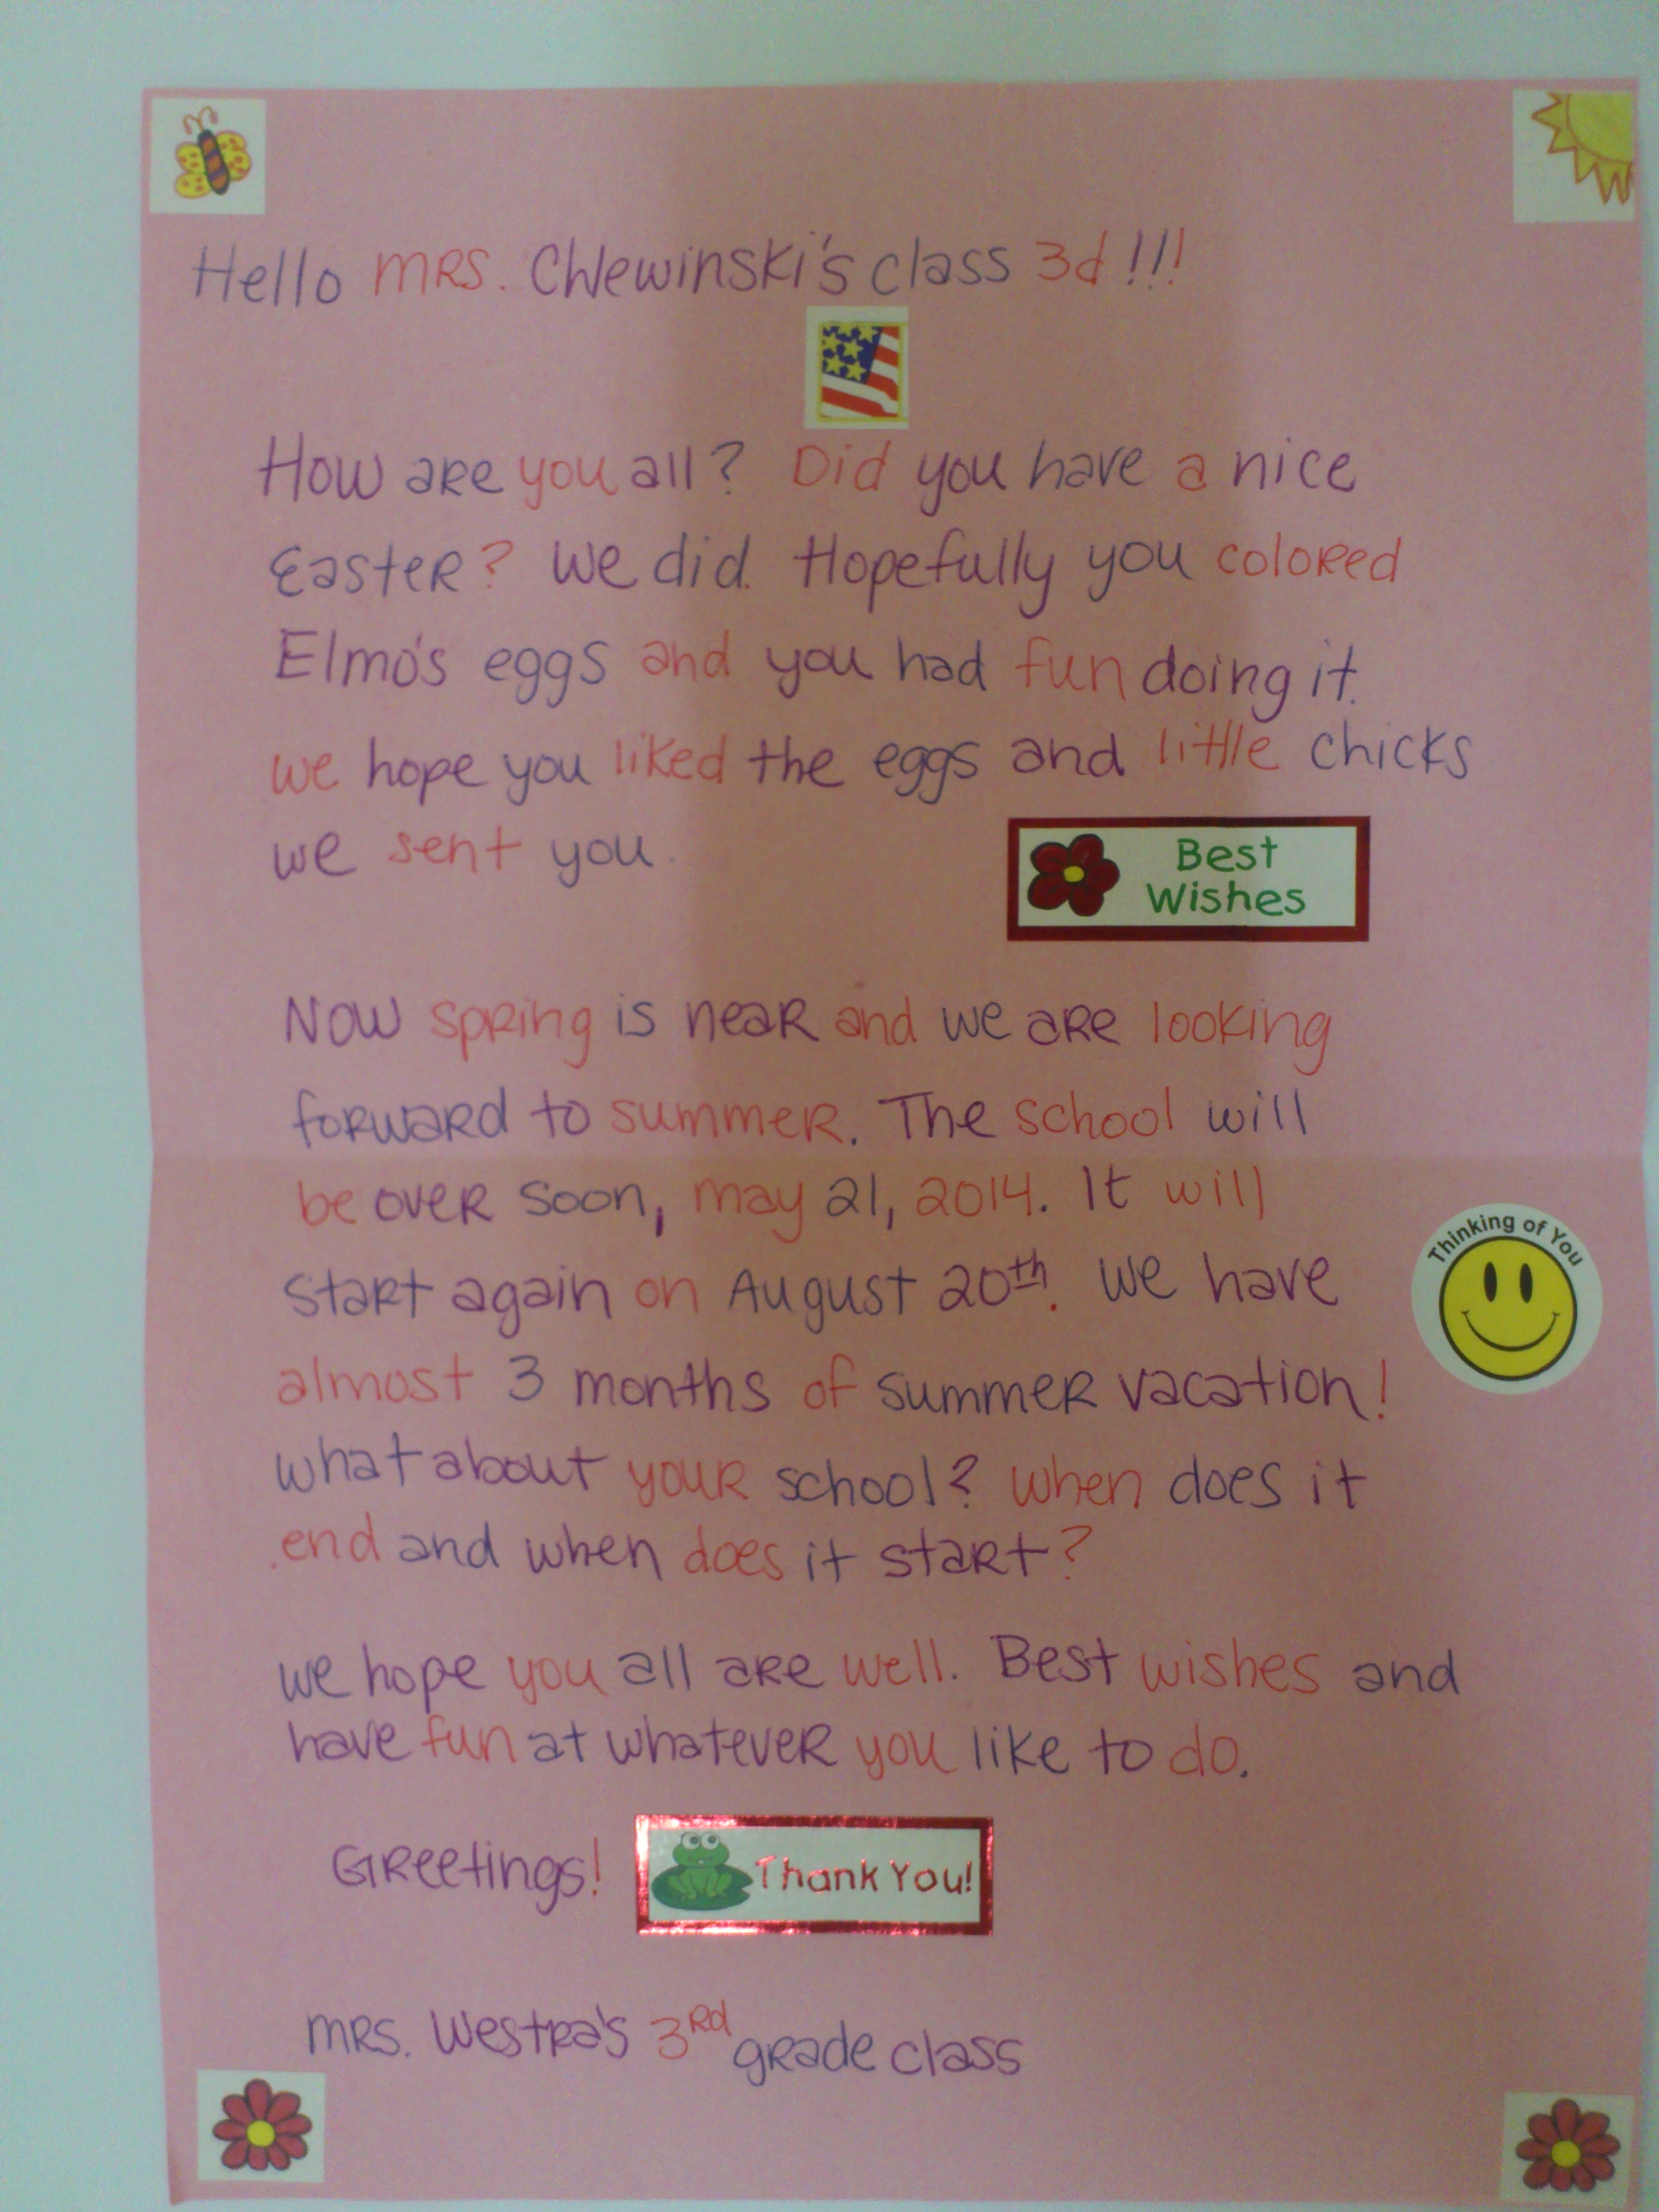 Hello MRS. Chlewinski's class 3d!!!
How are you all? Did you have a nice
Easter? We did. Hopefully you colored
Elmo's eggs and you had fun doing it.
We hope you liked the eggs and little chicks
we sent you.
Best
Wishes
Now spring is near and we are looking
forward to summer. The school will
be over soon, may 21, 2014. It will
start again on August 20th. We have
Thinking of You
almost 3 months of summer vacation!
What about your school? When does it
end and when does it start?
We hope you all are well. Best wishes and
have fun at whatever you like to do.
Greetings!
Thank You!
MRS. Westra's 3Rd grade class